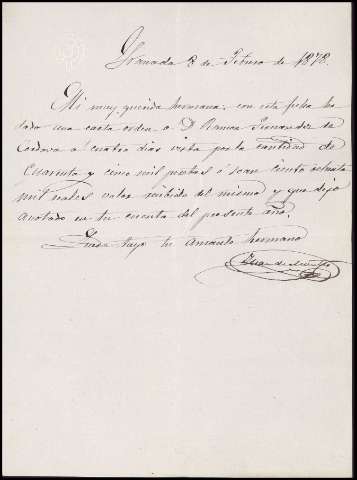 Granada 2 de Febrero de 1878.
Mi muy querida hermana: con esta fecha he
dado una carta orden a D Ramon Fernandez de
Cordova a cuatro dias vista por la cantidad de
Cuarenta y cinco mil pesetas ó sean ciento ochenta
mil reales valor recibido del mismo y que dejo
anotado en tu cuenta del presente año.
Queda tuyo tu amante hermano
Juan de